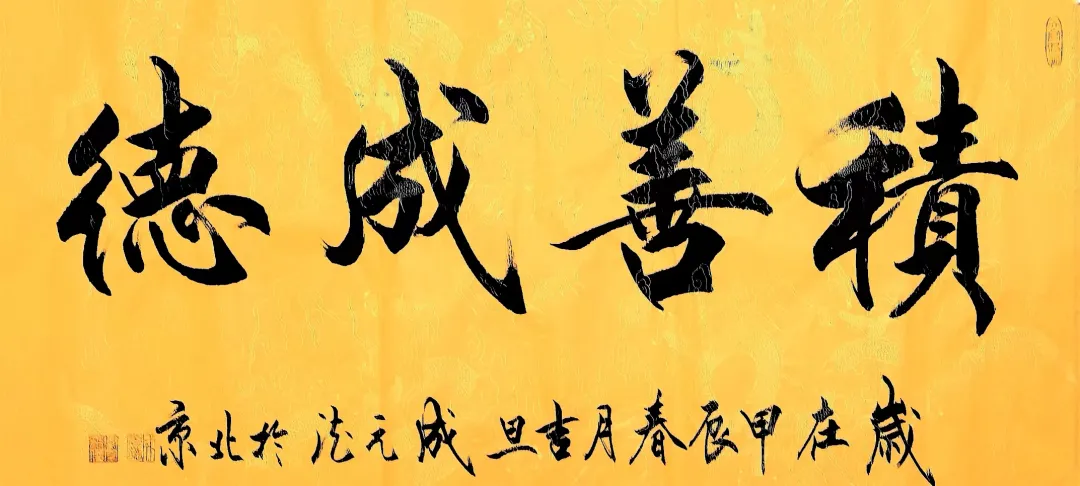 積善成德
歲在甲辰春月吉旦成元法於北京